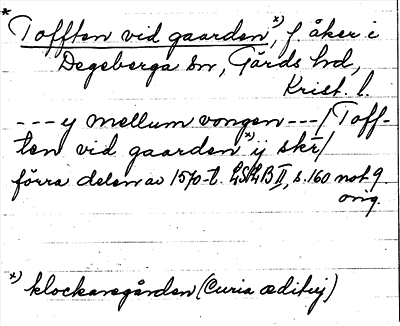 *
Tofften vid gaarden *), f. åker i
Degeberga sn, Gärds hd,
Krist. l.
--- y mellum vongen --- / Toff-
ten vid gaarden *) ij skr /
förra delen av 1570-t. LSLB II, s. 160 not 9
orig.
*) klockaregården (Curia æditvj)